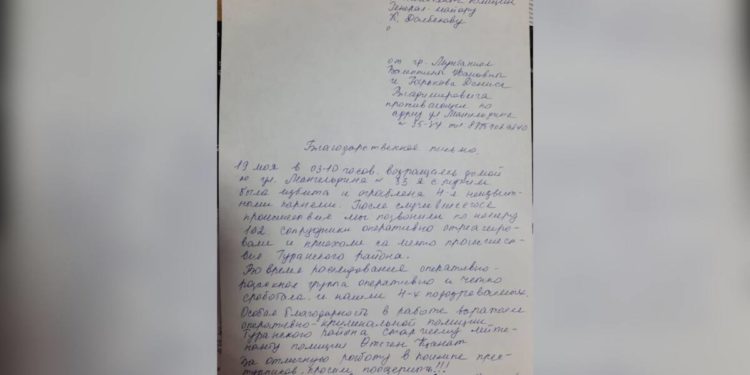 полиции
Генерал-майору
К. Далбекову
от гр.
Валентины Ивановны
и Горькова Дениса
Владимировича
проживающих по
адресу ул Мангельдина
Благодарственное письмо.
19 мая в 03-10 часов, возвращаясь домой
по ул. Мангельдина - 35 я с мужем
была избита и ограблена 4-я неизвест-
ными парнями. После случившегося
происшествия мы позвонили по номеру
102, сотрудники оперативно отреагиро-
вали и приехали на место происшест-
вия Туранского района.
Во время расследования оперативно-
розыскная группа оперативно и четко
сработала и нашли 4-х подозреваемых.
Особая благодарность в работе выражаю
оперативно-криминальной полиции
Туранского района старшему лейте-
нанту полиции Өтеген Қанат
За отличную работу в поимке прес-
тупников, просим поощерить!!!